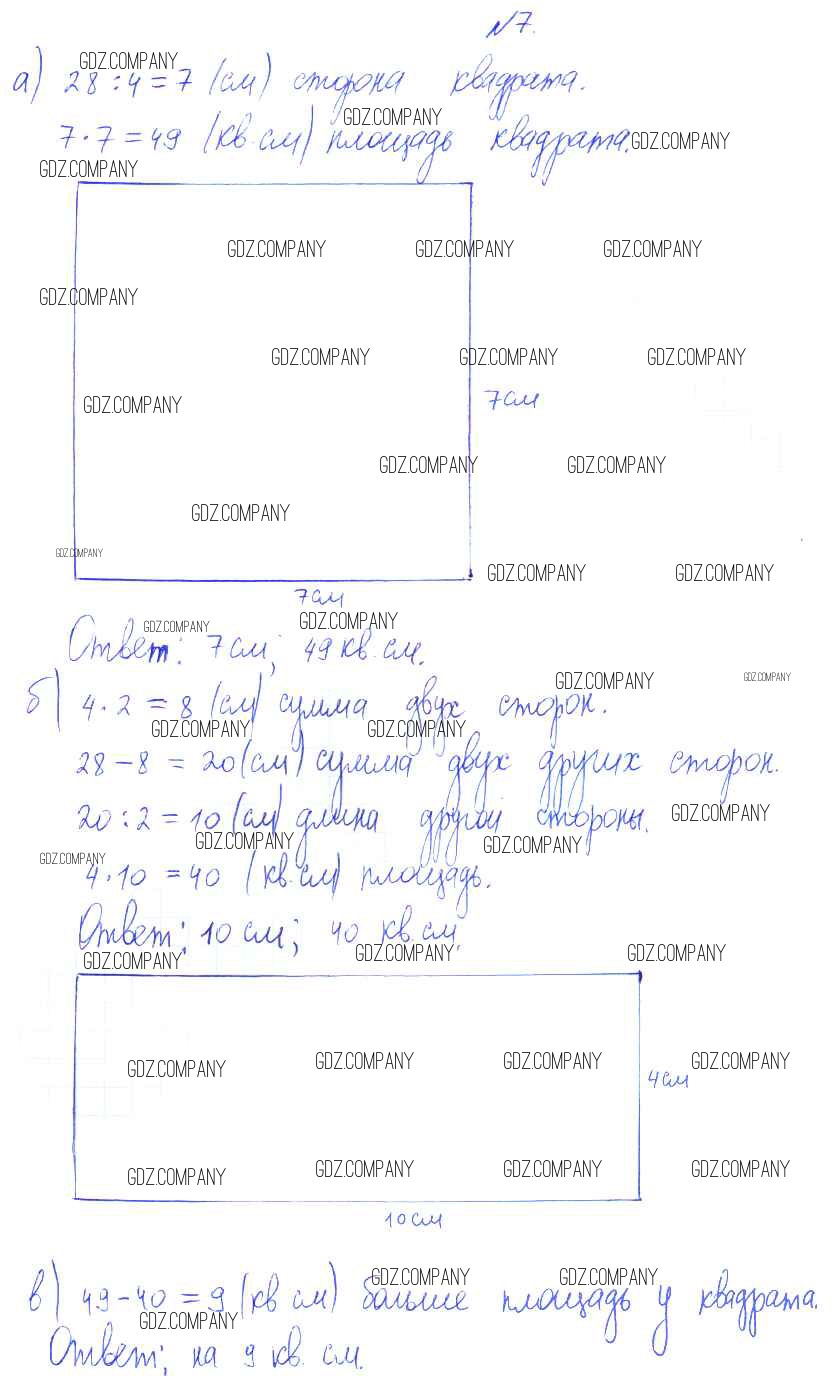 №7.
GDZ.COMPANY
а) 28 : 4 = 7 (см) сторона квадрата.
GDZ.COMPANY
7 · 7 = 49 (кв. см) площадь квадрата. GDZ.COMPANY
GDZ.COMPANY
GDZ.COMPANY GDZ.COMPANY GDZ.COMPANY
GDZ.COMPANY
GDZ.COMPANY GDZ.COMPANY GDZ.COMPANY
GDZ.COMPANY 7см
GDZ.COMPANY GDZ.COMPANY
GDZ.COMPANY
GDZ.COMPANY
GDZ.COMPANY GDZ.COMPANY
7см
GDZ.COMPANY GDZ.COMPANY
Ответ: 7 см; 49 кв. см.
GDZ.COMPANY GDZ.COMPANY
б) 4 · 2 = 8 (см) сумма двух сторон.
GDZ.COMPANY GDZ.COMPANY
28 – 8 = 20 (см) сумма двух других сторон.
20 : 2 = 10 (см) длина другой стороны. GDZ.COMPANY
GDZ.COMPANY GDZ.COMPANY
GDZ.COMPANY
4 · 10 = 40 (кв. см) площадь.
Ответ: 10 см; 40 кв. см.
GDZ.COMPANY GDZ.COMPANY GDZ.COMPANY
GDZ.COMPANY GDZ.COMPANY GDZ.COMPANY GDZ.COMPANY
4см
GDZ.COMPANY GDZ.COMPANY GDZ.COMPANY GDZ.COMPANY
10см
GDZ.COMPANY GDZ.COMPANY
в) 49 – 40 = 9 (кв см) больше площадь у квадрата.
GDZ.COMPANY
Ответ: на 9 кв. см.